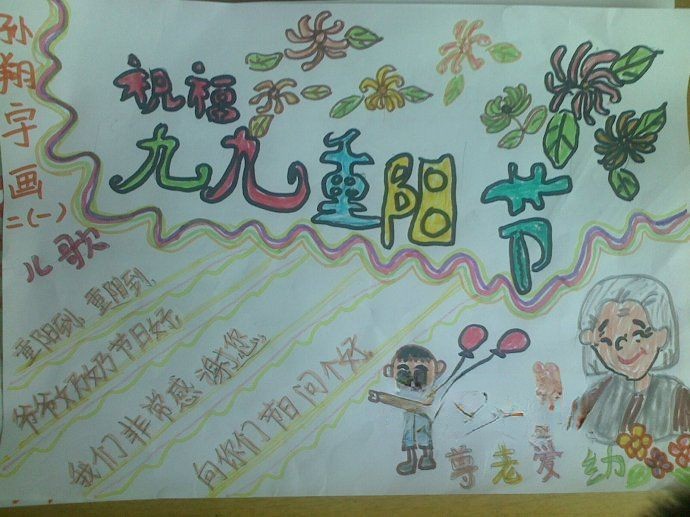 孙翔宇画
二(一)
祝福
九九重阳节
儿歌
重阳到,重阳到,
爷爷奶奶节日好
我们非常感谢您,
向你们节日问个好
尊老爱幼